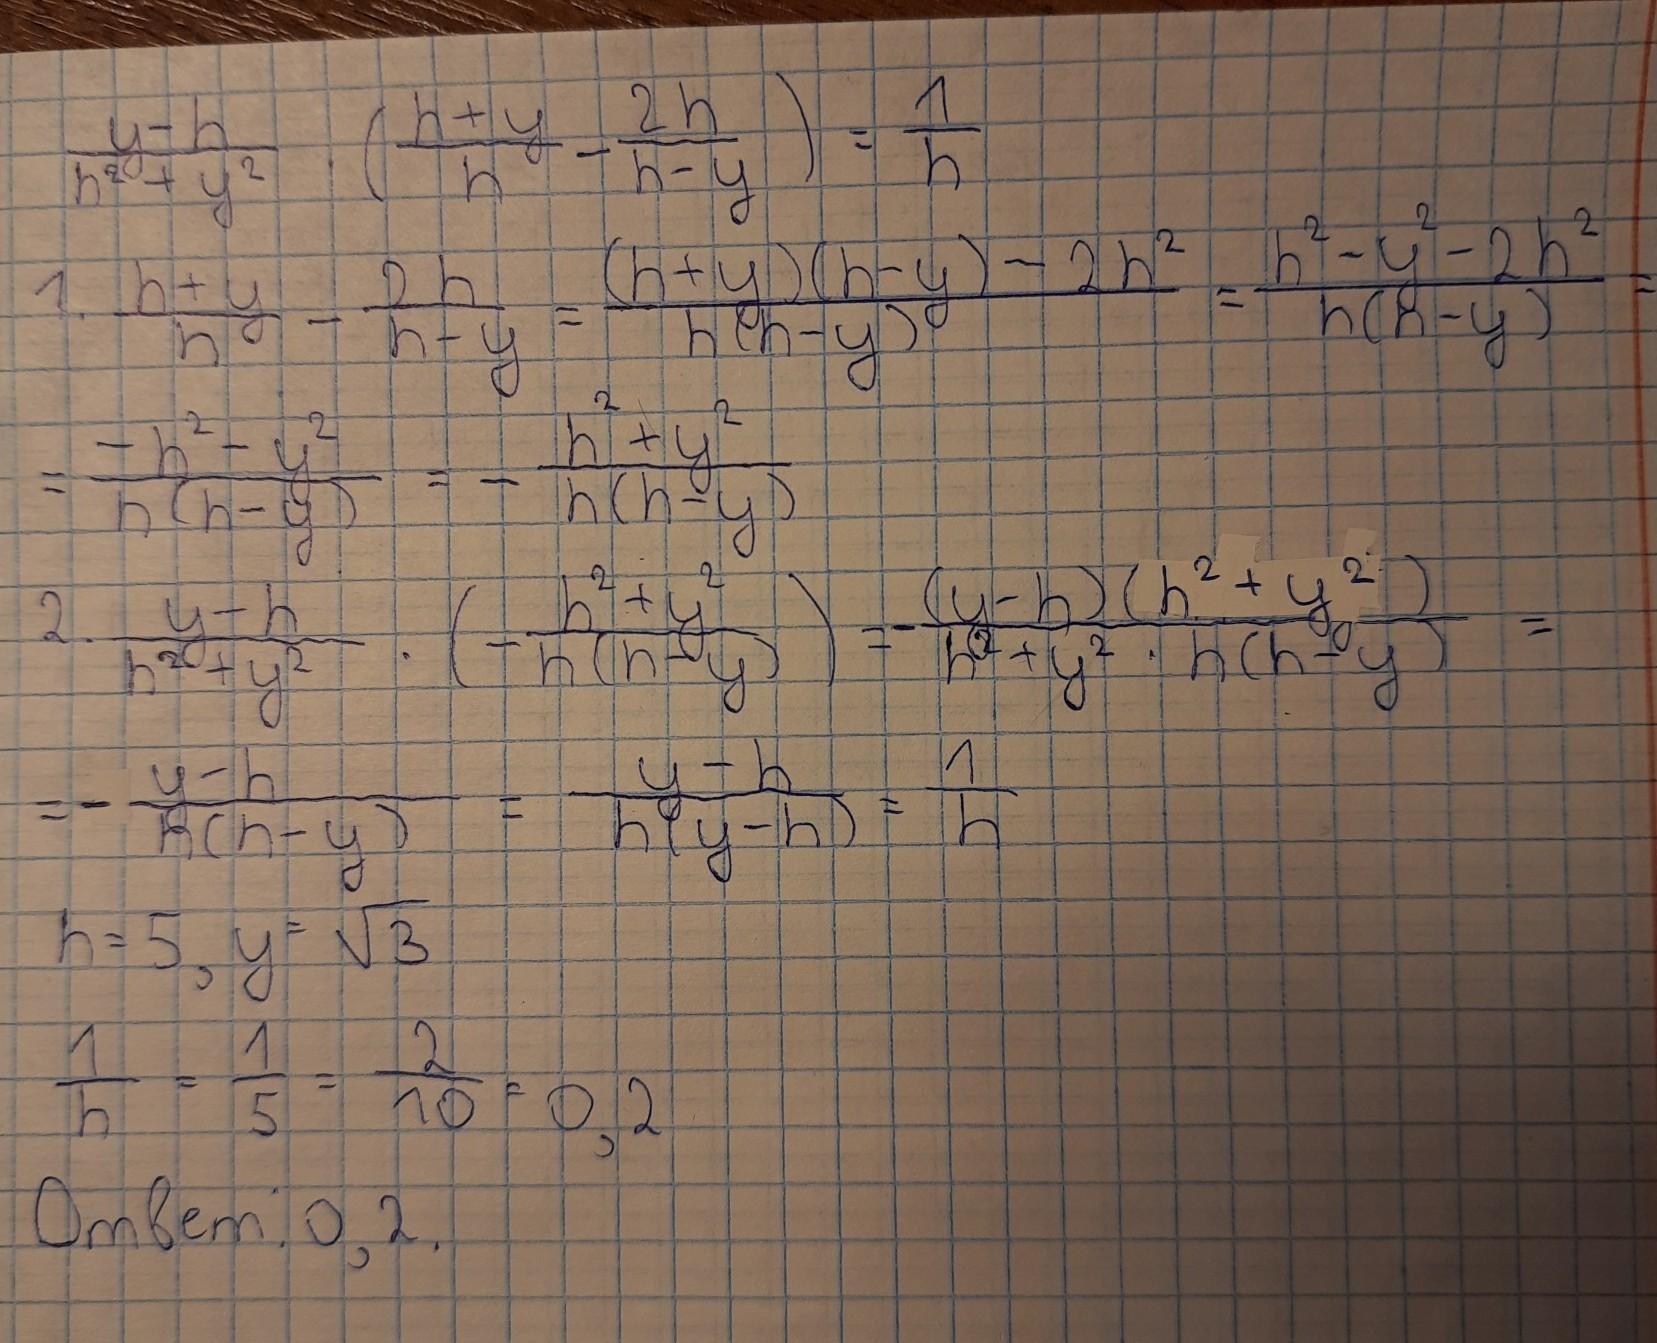 (y-h)/(h²+y²) · ((h+y)/h - 2h/(h-y)) = 1/h
1. (h+y)/h - 2h/(h-y) = ((h+y)(h-y)-2h²)/(h(h-y)) = (h²-y²-2h²)/(h(h-y)) =
= (-h²-y²)/(h(h-y)) = - (h²+y²)/(h(h-y))
2. (y-h)/(h²+y²) · (- (h²+y²)/(h(h-y))) = - ((y-h)(h²+y²))/(h²+y² · h(h-y)) =
= - (y-h)/(h(h-y)) = (y-h)/(h(y-h)) = 1/h
h=5, y=√3
1/h = 1/5 = 2/10 = 0,2
Ответ: 0,2.